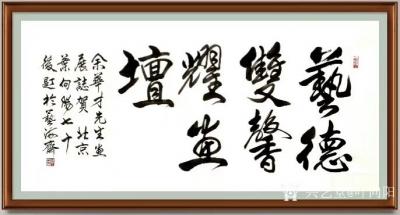 藝德
雙馨
耀畫
壇
余華才先生畫
展誌賀 北京
葉向陽七十
後題於藝海齋
@叶向阳